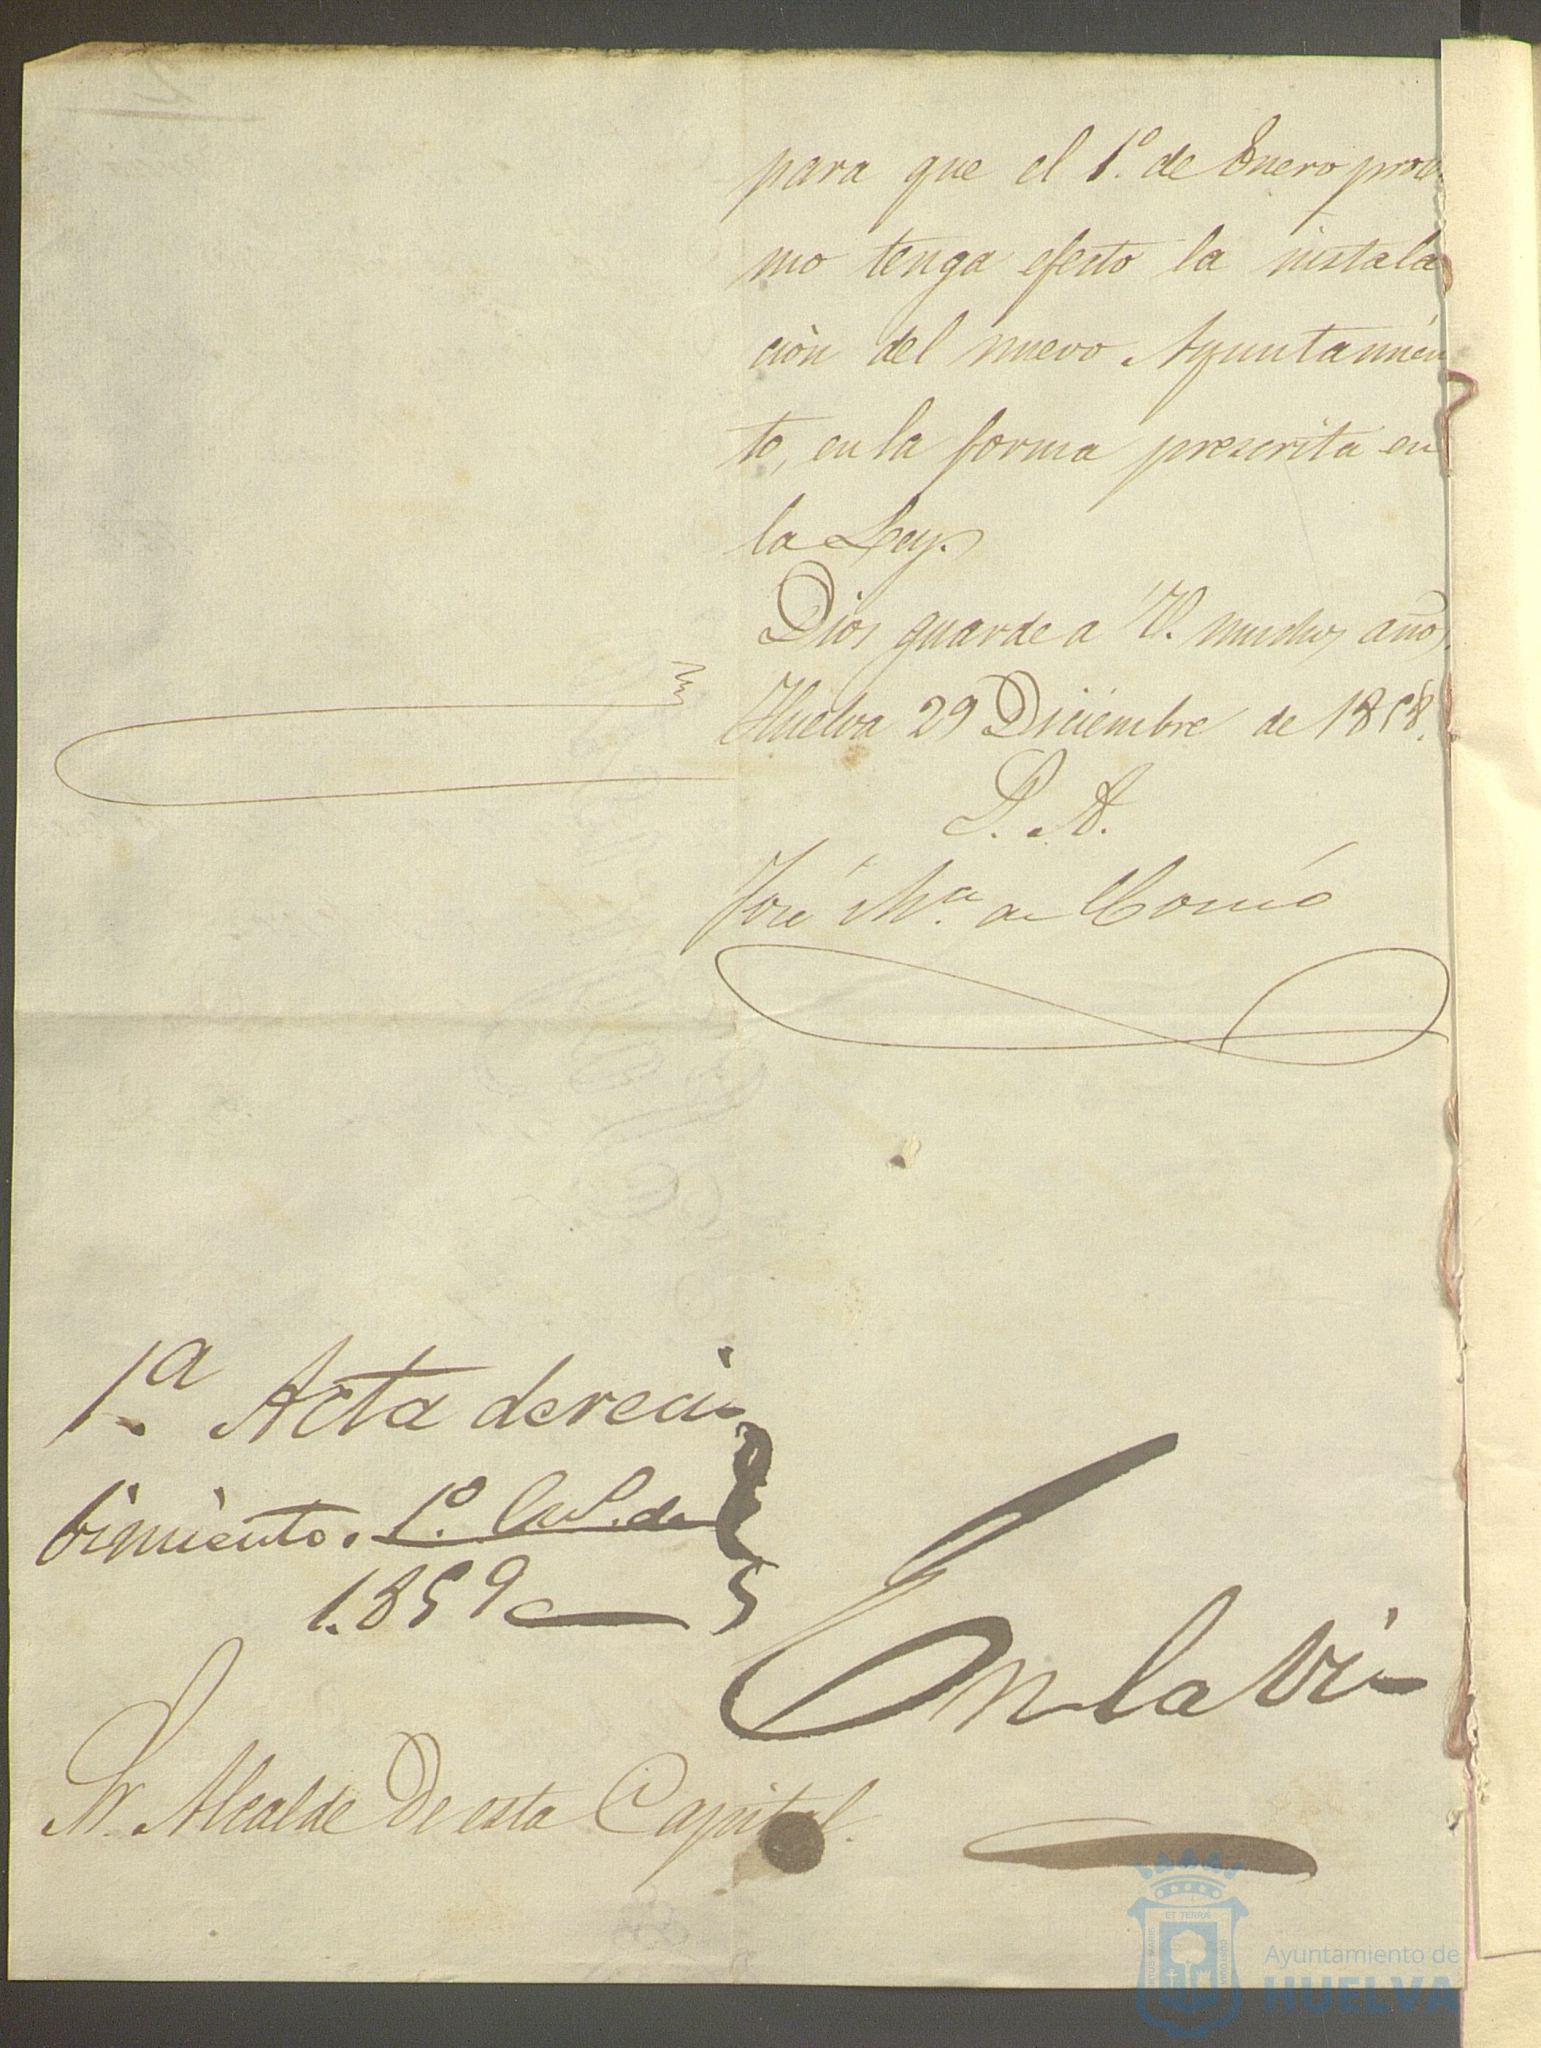 para que el 1º. de Enero proxi
mo tenga efecto la instala
ción del nuevo Ayuntamien
to, en la forma prescrita en
la Ley.
Dios guarde a V. muchos años.
Huelva 29 Diciembre de 1858.
P. A.
José Mª. de
1ª. Acta de reci-
bimiento. 1º. de
1.859
En la Vi-
Sr. Alcalde De esta Capital.
ET TERRAE
Ayuntamiento de
HUELVA